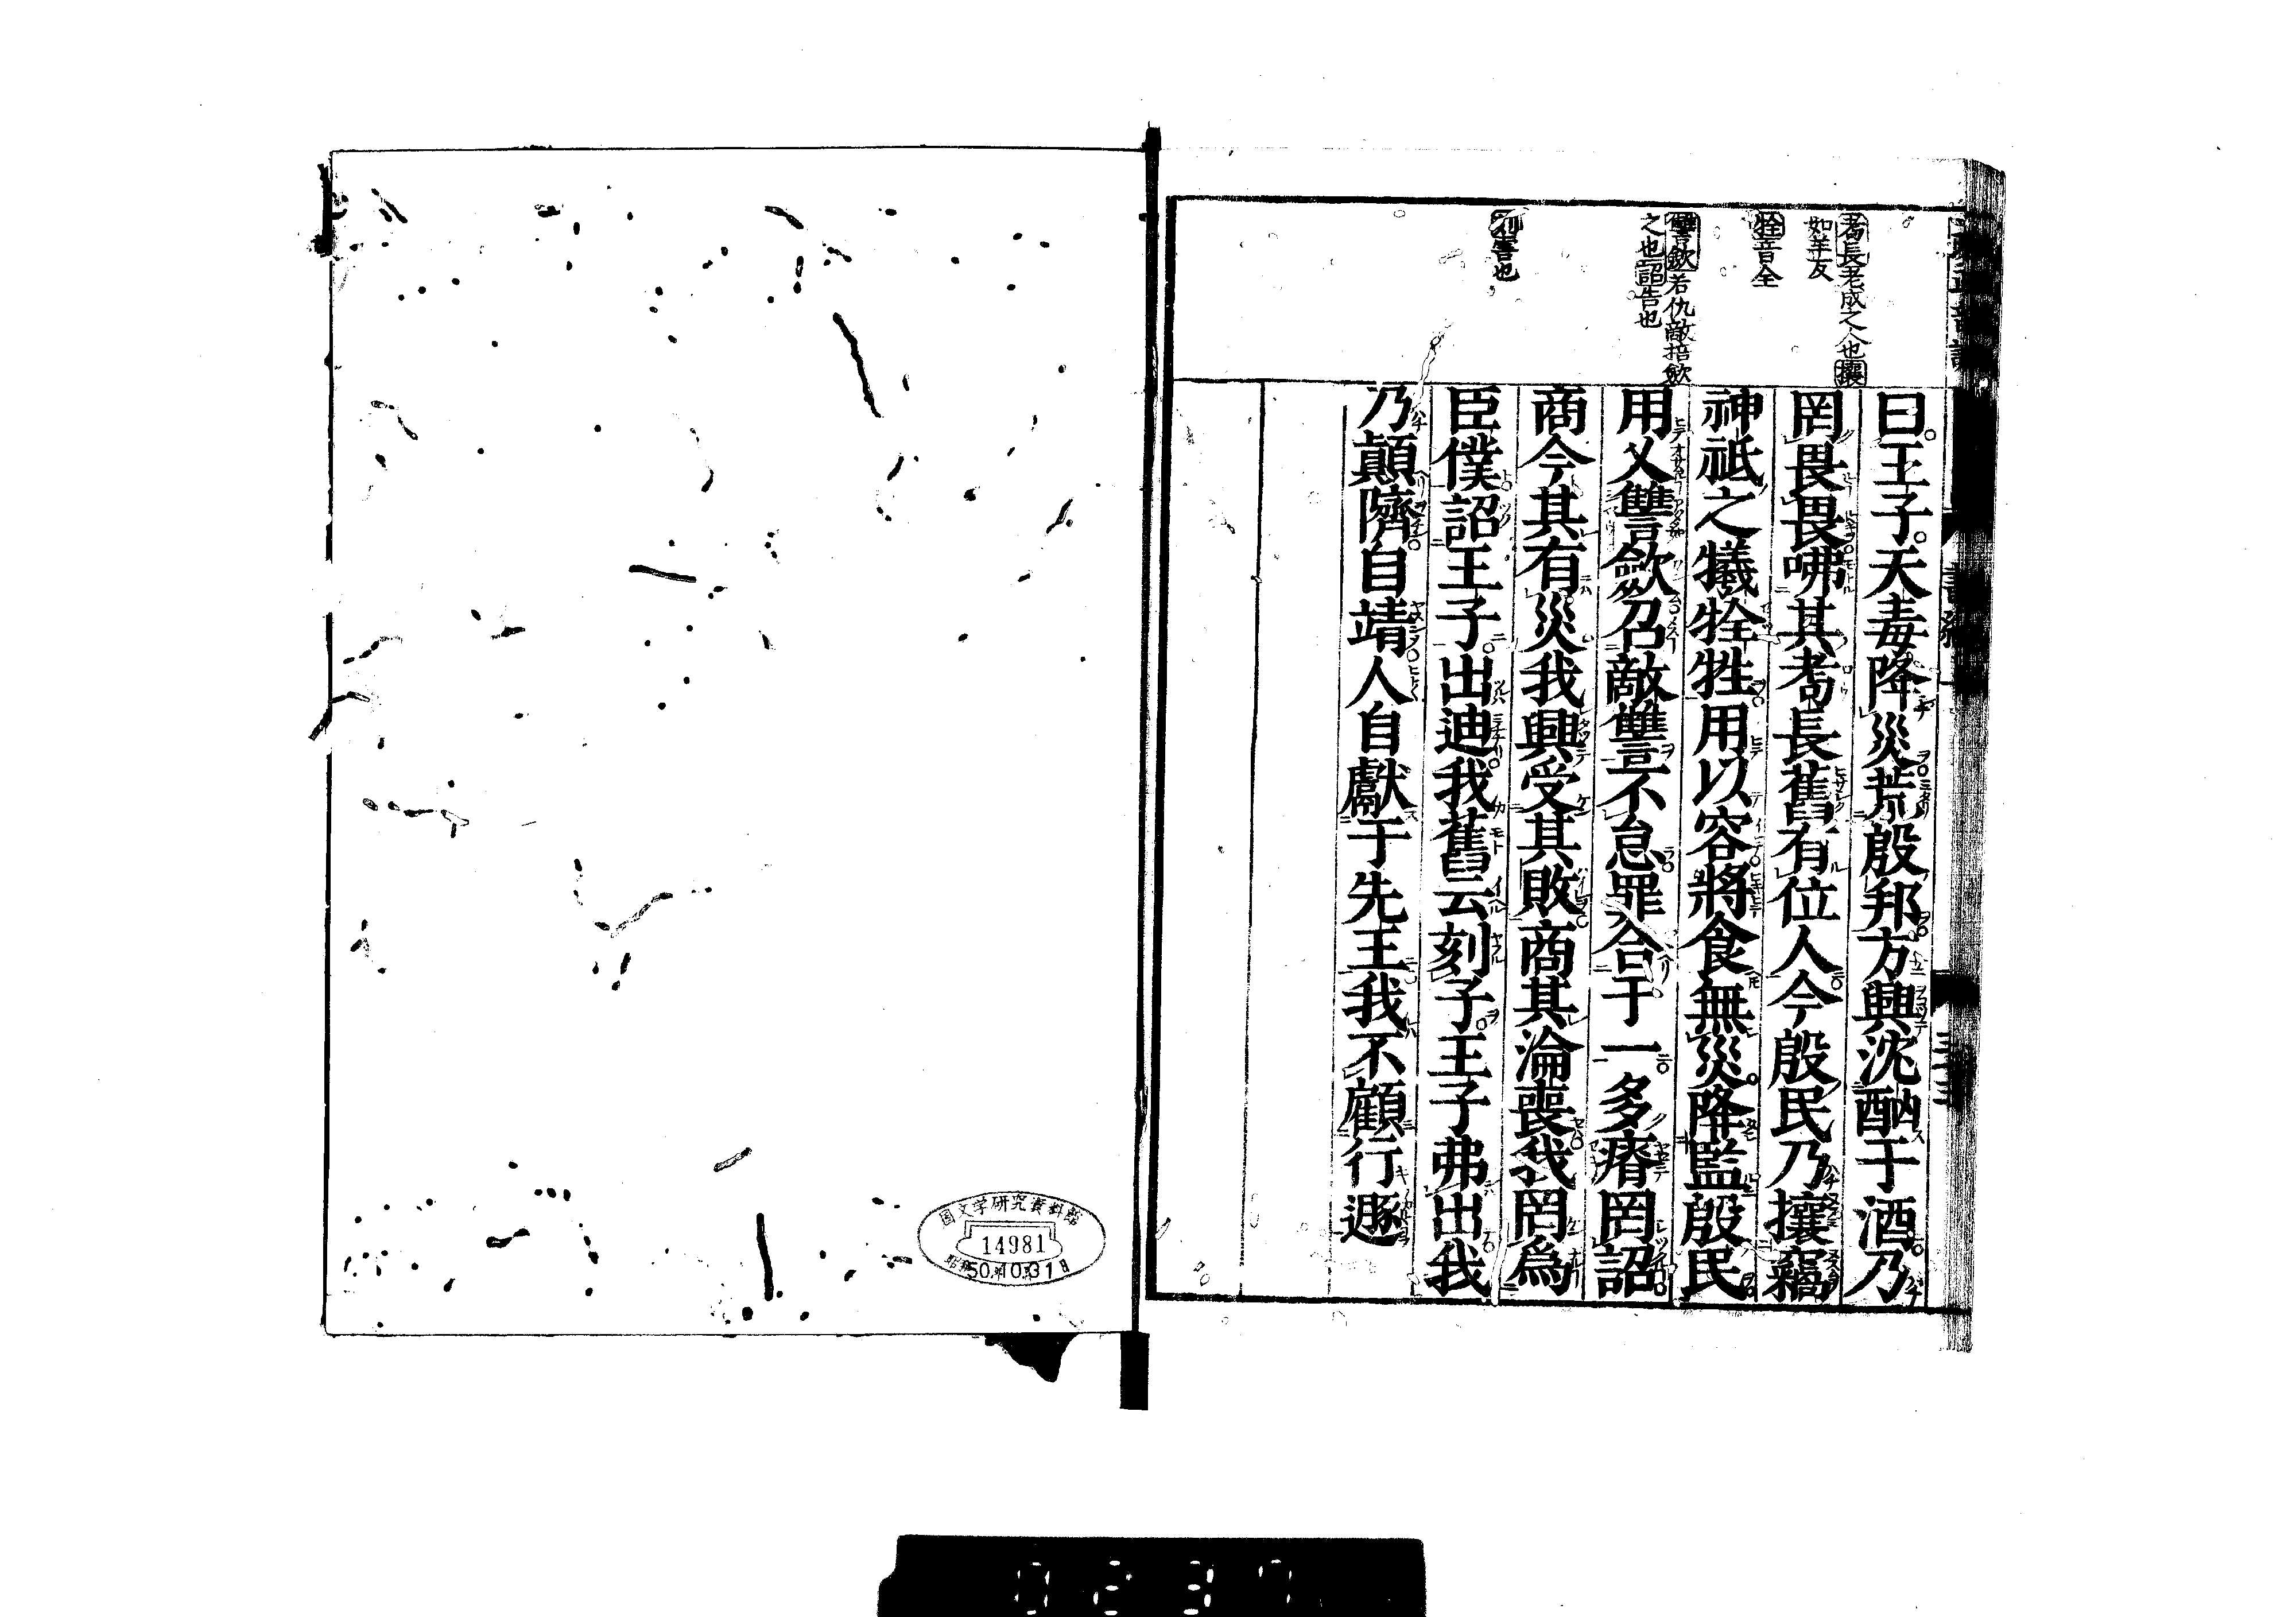 耉長老成之人也攘
如羊反
牷音全
讐斂若仇敵掊斂
之也詔告也
刻害也
曰王子天毒降災荒殷邦方興沈酗于酒乃
罔畏畏咈其耉長舊有位人今殷民乃攘竊
神祇之犧牷牲用以容將食無災降監殷民
用乂讐斂召敵讐不怠罪合于一多瘠罔詔
商今其有災我興受其敗商其淪喪我罔爲
臣僕詔王子出迪我舊云刻子王子弗出我
乃顚隮自靖人自獻于先王我不顧行遯
国文学研究資料館
14981
昭和50.10.31日
0237